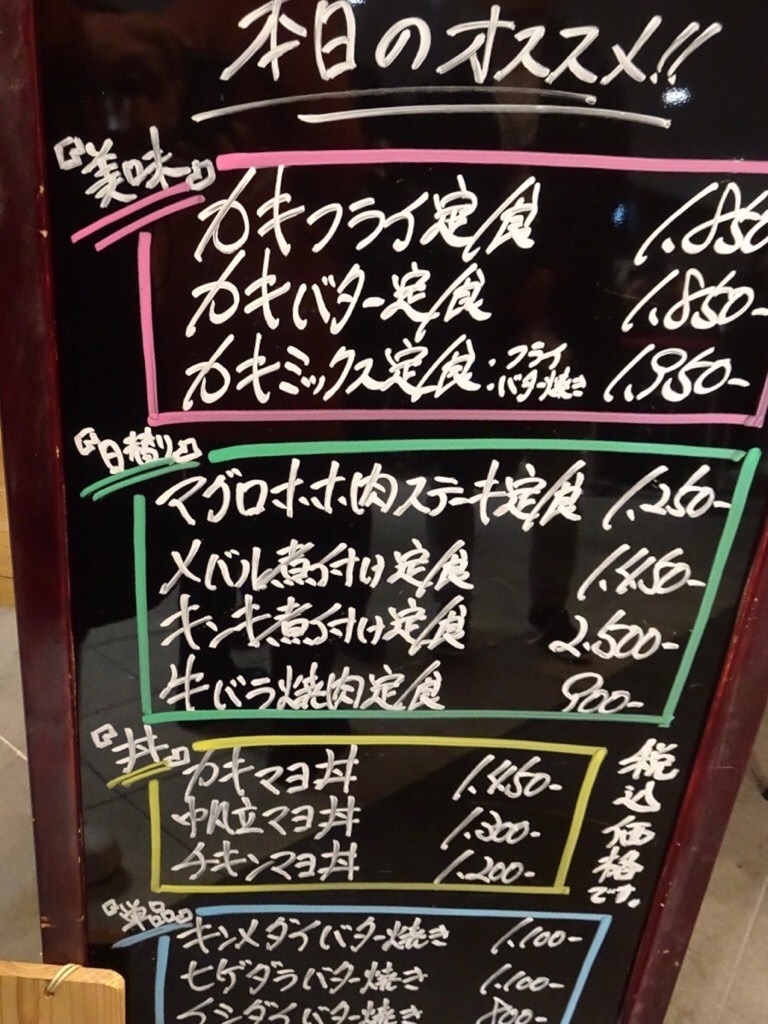 本日のオススメ!!
『美味』
カキフライ定食 1.850
カキバター定食 1.850-
カキミックス定食:フライ バター焼き 1.950-
『日替り』
マグロホホ肉ステーキ定食 1.250-
メバル煮付け定食 1.450-
キンキ煮付け定食 2.500-
牛バラ焼肉定食 900-
『丼』
カキマヨ丼 1.450-
帆立マヨ丼 1.300-
チキンマヨ丼 1.200-
税込価格です。
『単品』
キンメダイバター焼き 1.100-
ヒゲダラバター焼き 1.100-
イシダイバター焼き 800-